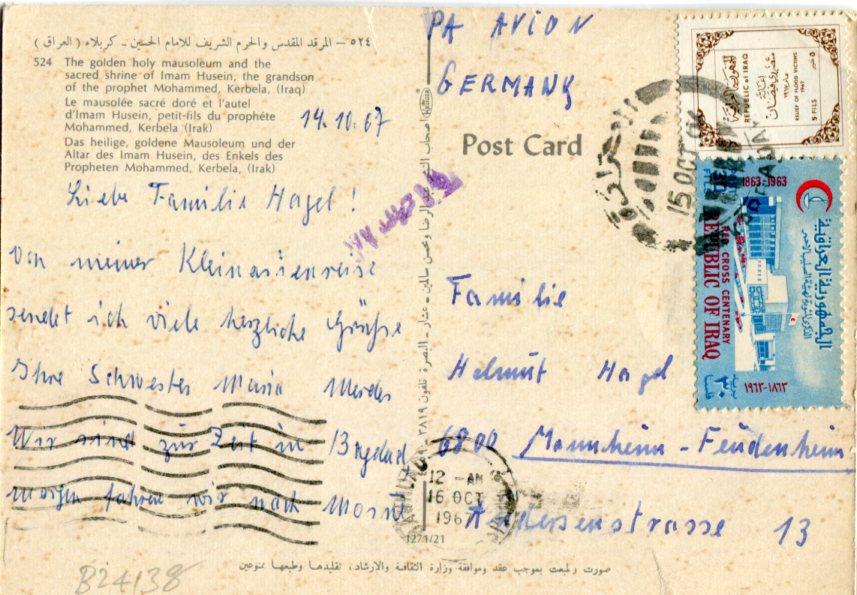 ٥٢٤ – المرقد المقدس والحرم الشريف للامام الحسين – كربلاء (العراق)
524 The golden holy mausoleum and the
sacred shrine of Imam Husein, the grandson
of the prophet Mohammed, Kerbela, (Iraq)
Le mausolée sacré doré et l'autel
d'Imam Husein, petit-fils du prophéte
Mohammed, Kerbela (Irak)
Das heilige, goldene Mausoleum und der
Altar des Imam Husein, des Enkels des
Propheten Mohammed, Kerbela, (Irak)
14.10.67
Liebe Familie Hagel!
Von meiner Kleinasienreise
sendet ich viele herzliche Grüße
Ihre Schwester Maria
Wir sind zur Zeit in Bagdad
morgen fahren wir nach Mossul
B24138
PAR AVION
GERMANY
Post Card
Familie
Helmut Hagel
6800 Mannheim-Feudenheim
Andersenstrasse 13
15 OCT
12 - AM
16 OCT
196
1271/21
REPUBLIC of IRAQ
RELIEF OF FLOOD VICTIMS
1967
5 FILS
1863-1963
RED CROSS CENTENARY
REPUBLIC OF IRAQ
الجمهورية العراقية
١٨٦٣-١٩٦٣
٣٠
صورت وطبعت بموجب عقد وموافقة وزارة الثقافة والارشاد، تقليدها وطبعها ممنوعين